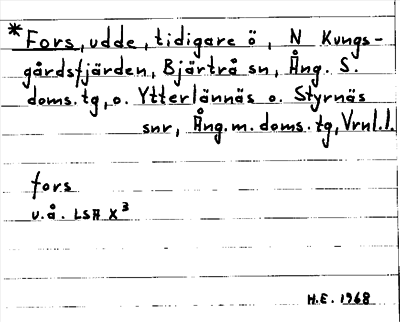 *Fors, udde, tidigare ö, N Kungs-
gårdsfjärden, Bjärtrå sn, Ång. S.
doms. tg, o. Ytterlännäs o. Styrnäs
snr, Ång. m. doms. tg, Vrnl. l.
fors
u.å. LSA X³
H.E. 1968